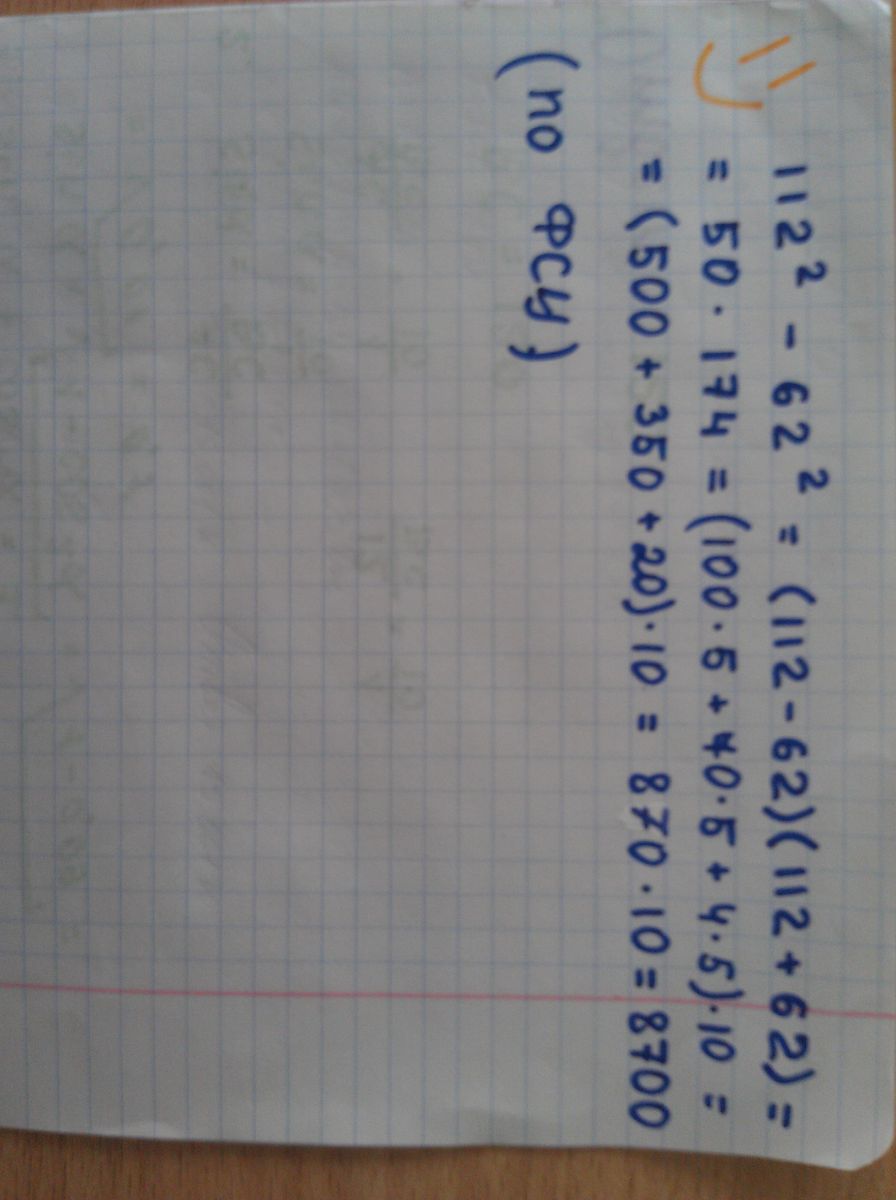 112² - 62² = (112-62)(112+62) =
= 50·174 = (100·5+70·5+4·5)·10 =
= (500+350+20)·10 = 870·10=8700
(по ФСУ)